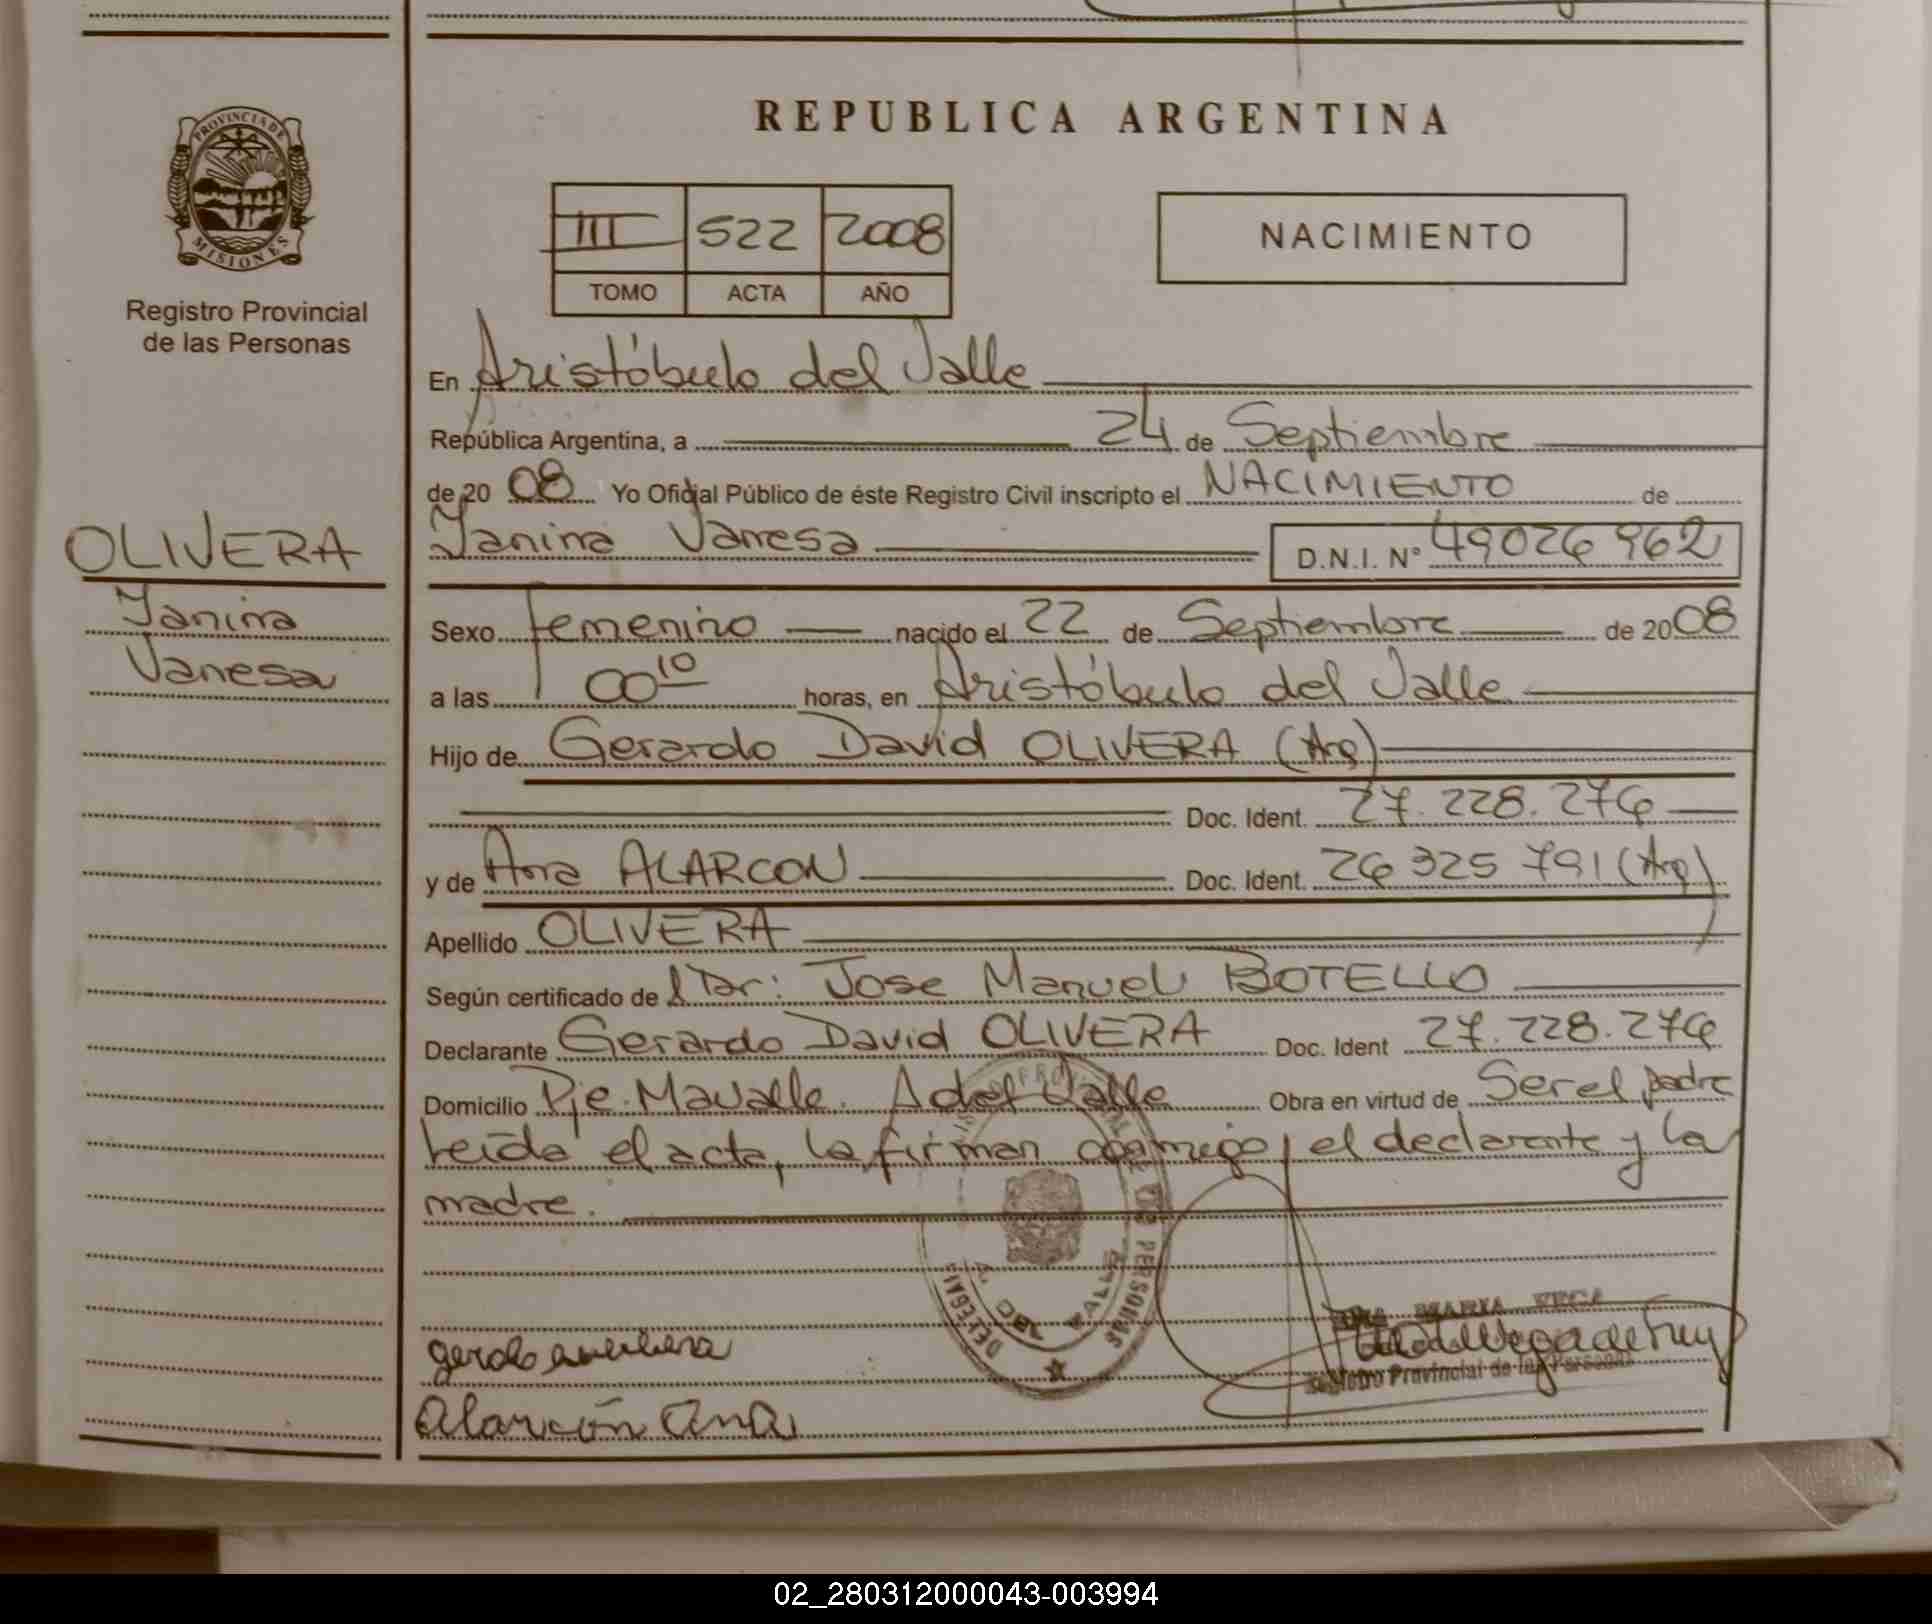 PROVINCIA DE
MISIONES
Registro Provincial
de las Personas
OLIVERA
Yanina
Vanesa
REPUBLICA ARGENTINA
III 522 2008
TOMO ACTA AÑO
NACIMIENTO
En Aristóbulo del Valle
República Argentina, a 24 de Septiembre
de 2008 Yo Oficial Público de éste Registro Civil inscripto el NACIMIENTO de
Yanina Vanesa D.N.I. N° 49026962
Sexo femenino nacido el 22 de Septiembre de 2008
a las 00 10 horas, en Aristóbulo del Valle
Hijo de Gerardo David OLIVERA (Arg)
Doc. Ident. 27.228.276
y de Ana ALARCON Doc. Ident. 26 325 791 (Arg)
Apellido OLIVERA
Según certificado de Dr: Jose Manuel BOTELLO
Declarante Gerardo David OLIVERA Doc. Ident 27.228.276
Domicilio Pje. Mavalle. A del Valle Obra en virtud de Ser el padre
Leída el acta, la firman conmigo, el declarante y la
madre.
MARIA
Registro Provincial de las Personas
Alarcón Ana
02_280312000043-003994